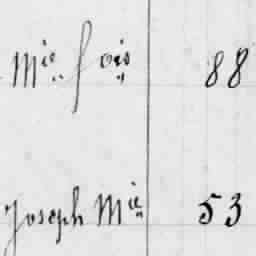 Mie fois 88
Joseph Mie 53